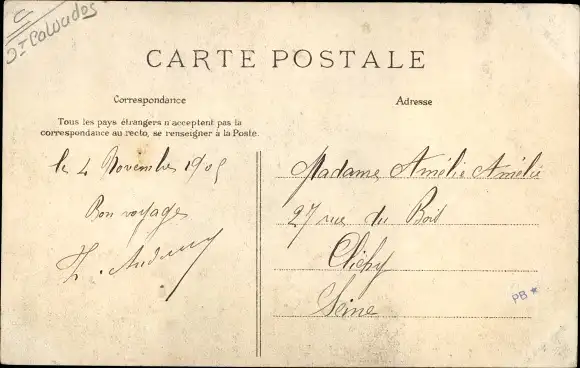 Dt Calvados
CARTE POSTALE
Correspondance
Adresse
Tous les pays étrangers n'acceptent pas la
correspondance au recto, se renseigner à la Poste.
le 4 Novembre 1905
Bon voyage
Madame Amélie Amélie
27 rue du Bois
Clichy
Seine
PB *